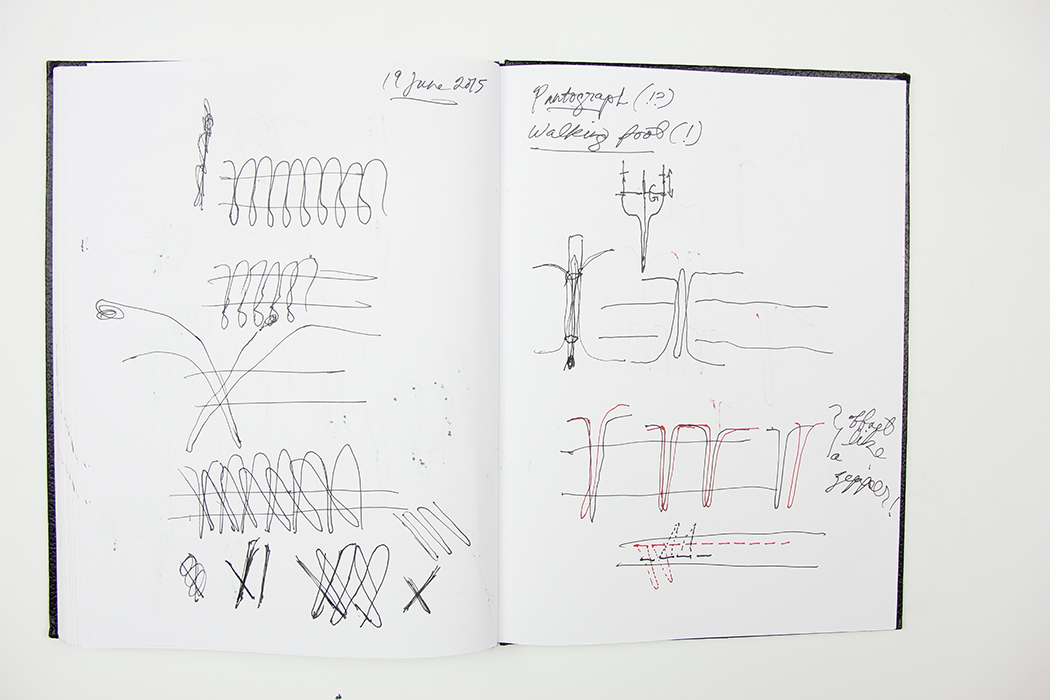 19 June 2015
Pantograph (!?)
Walking foot (!)
offset
like
a
zipper!